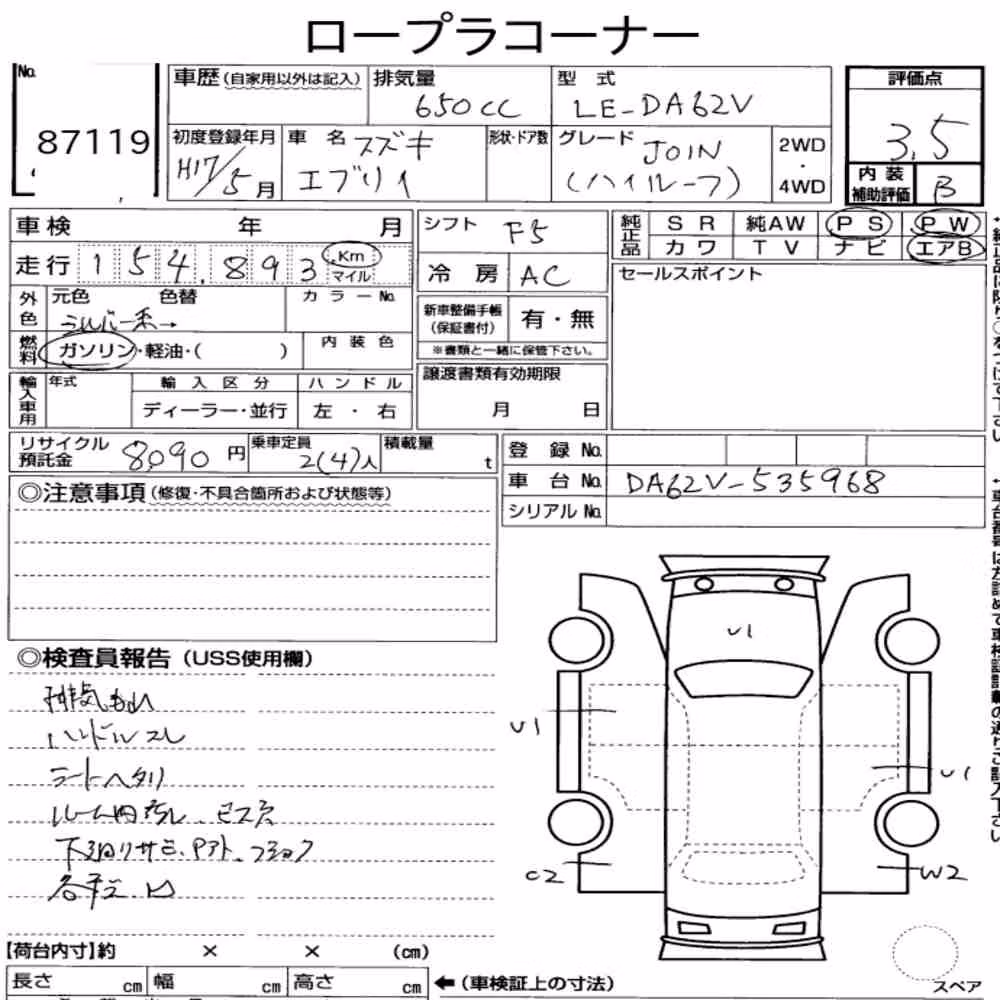 ロープラコーナー
No. 87119
車歴(自家用以外は記入) 排気量 650cc 型式 LE-DA62V
初度登録年月 H17/5月 車名 スズキ エブリイ 形状・ドア数 グレード JOIN (ハイルーフ) 2WD・4WD
評価点 3.5
内装補助評価 B
車検 年 月
走行 154,893 Km マイル
外色 元色 色替 カラーNo.
シルバー系→
燃料 ガソリン・軽油・( ) 内装色
輸入車用 年式 輸入区分 ハンドル
ディーラー・並行 左・右
シフト F5
冷房 AC
新車整備手帳(保証書付) 有・無
※書類と一緒に保管下さい。
譲渡書類有効期限
月 日
純正品 SR 純AW PS PW
カワ TV ナビ エアB
セールスポイント
リサイクル預託金 8090円 乗車定員 2(4)人 積載量 t
登録No.
車台No. DA62V-535968
シリアルNo.
◎注意事項(修復・不具合箇所および状態等)
◎検査員報告(USS使用欄)
排気もれ
ハンドルスレ
シートヘタリ
ルーム内汚れ、ビス穴
U1
U1
U1
C2
W2
【荷台内寸】約 × × (cm)
長さ cm 幅 cm 高さ cm ←(車検証上の寸法)
スペア